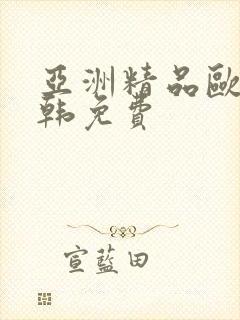 亞洲精品歐
韩免費
宣藍田